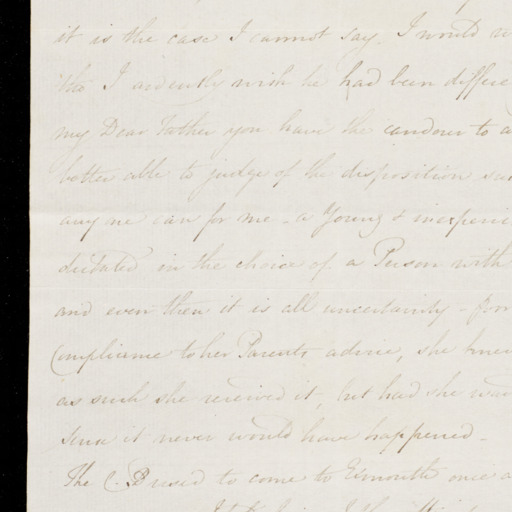 it is the case I cannot say. I would
tho I ardently wish he had been differe
my Dear Father you have the candour to a
better able to judge of the disposition
any one can for me - a Young & inexperie
dictated in the choice of a Person with
and even then it is all uncertainty - from
Compliance to her Parents advice, she knew
as such she received it, but had she
sense it never would have happened -
The C. B used to come to Exmouth once a